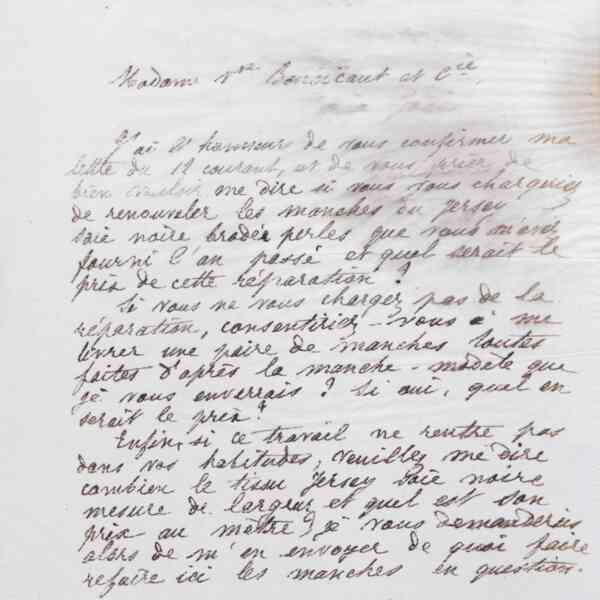 Madame Vve Boucicaut et Cie
J'ai l'honneur de vous confirmer ma
lettre du 12 courant, et de vous prier de
bien vouloir me dire si vous vous chargeriez
de renouveler les manches en Jersey
soie noire brodée perles que vous m'avez
fourni l'an passé et quel serait le
prix de cette réparation ?
Si vous ne vous chargez pas de la
réparation, consentiriez-vous à me
livrer une paire de manches toutes
faites d'après la manche-modèle que
je vous enverrais ? Si oui, quel en
serait le prix ?
Enfin, si ce travail ne rentre pas
dans vos habitudes, veuillez me dire
combien le tissu Jersey soie noire
mesure de largeur et quel est son
prix au mètre, je vous demanderais
alors de m'en envoyer de quoi faire
refaire ici les manches en question.